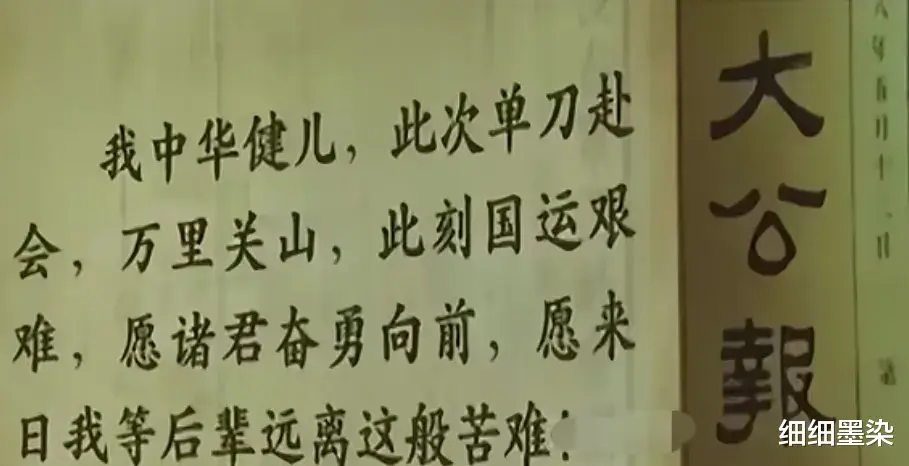 我中华健儿，此次单刀赴
会，万里关山，此刻国运艰
难，愿诸君奋勇向前，愿来
日我等后辈远离这般苦难！
大公報
细细墨染